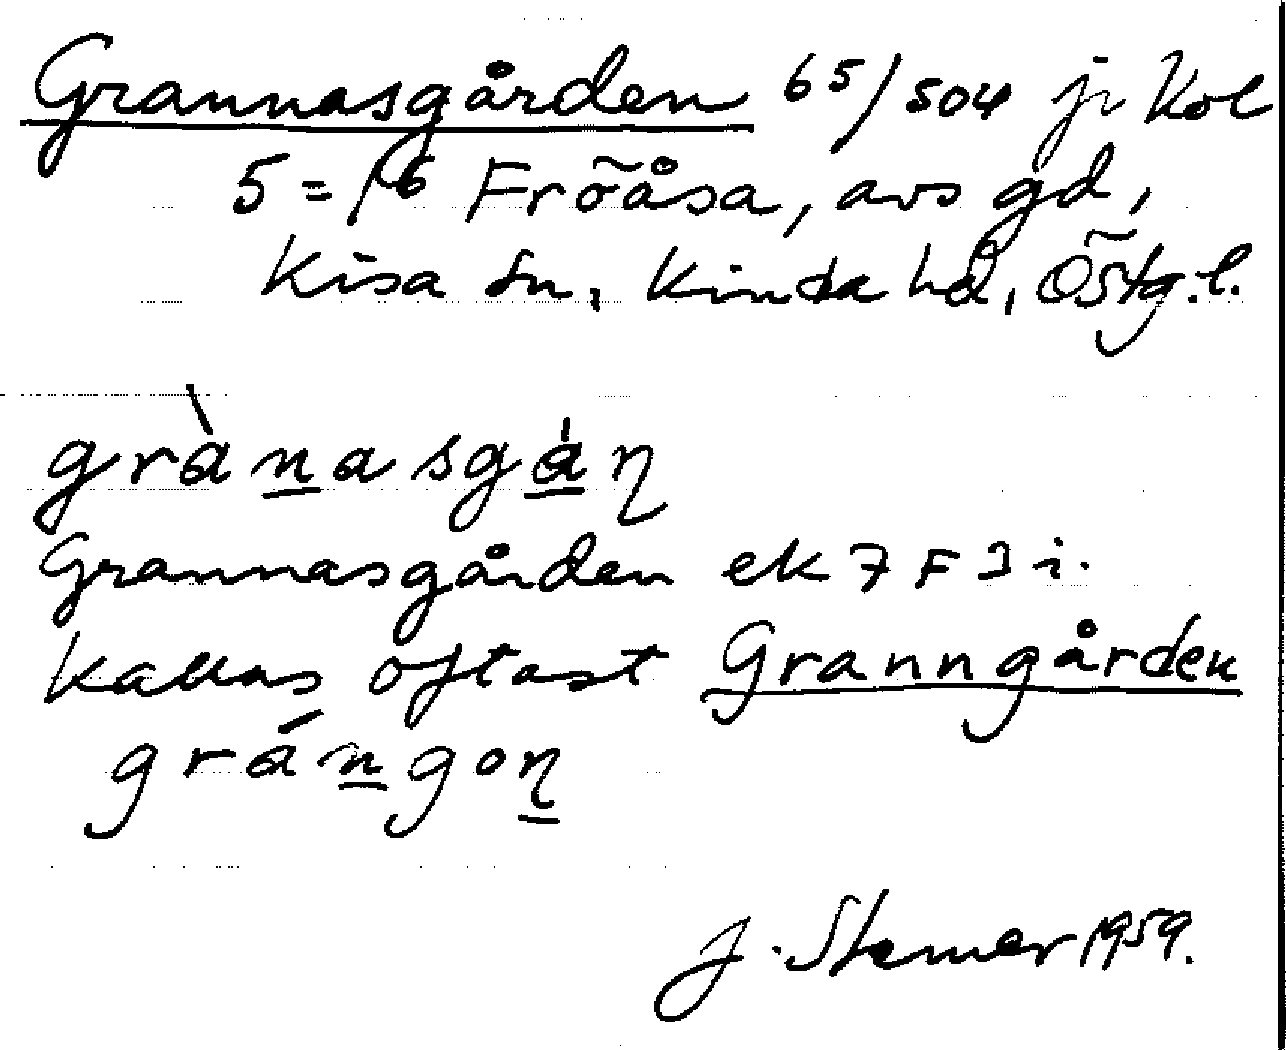 Grannasgården 65/504 jr kol
5 = 1/6 Fröåsa, avs gd,
Kisa sn, Kinda hd, Östg.l.
grànasgån
Grannasgården ek 7 F J i.
kallas oftast Granngården
grángon
J. Stemer 1959.